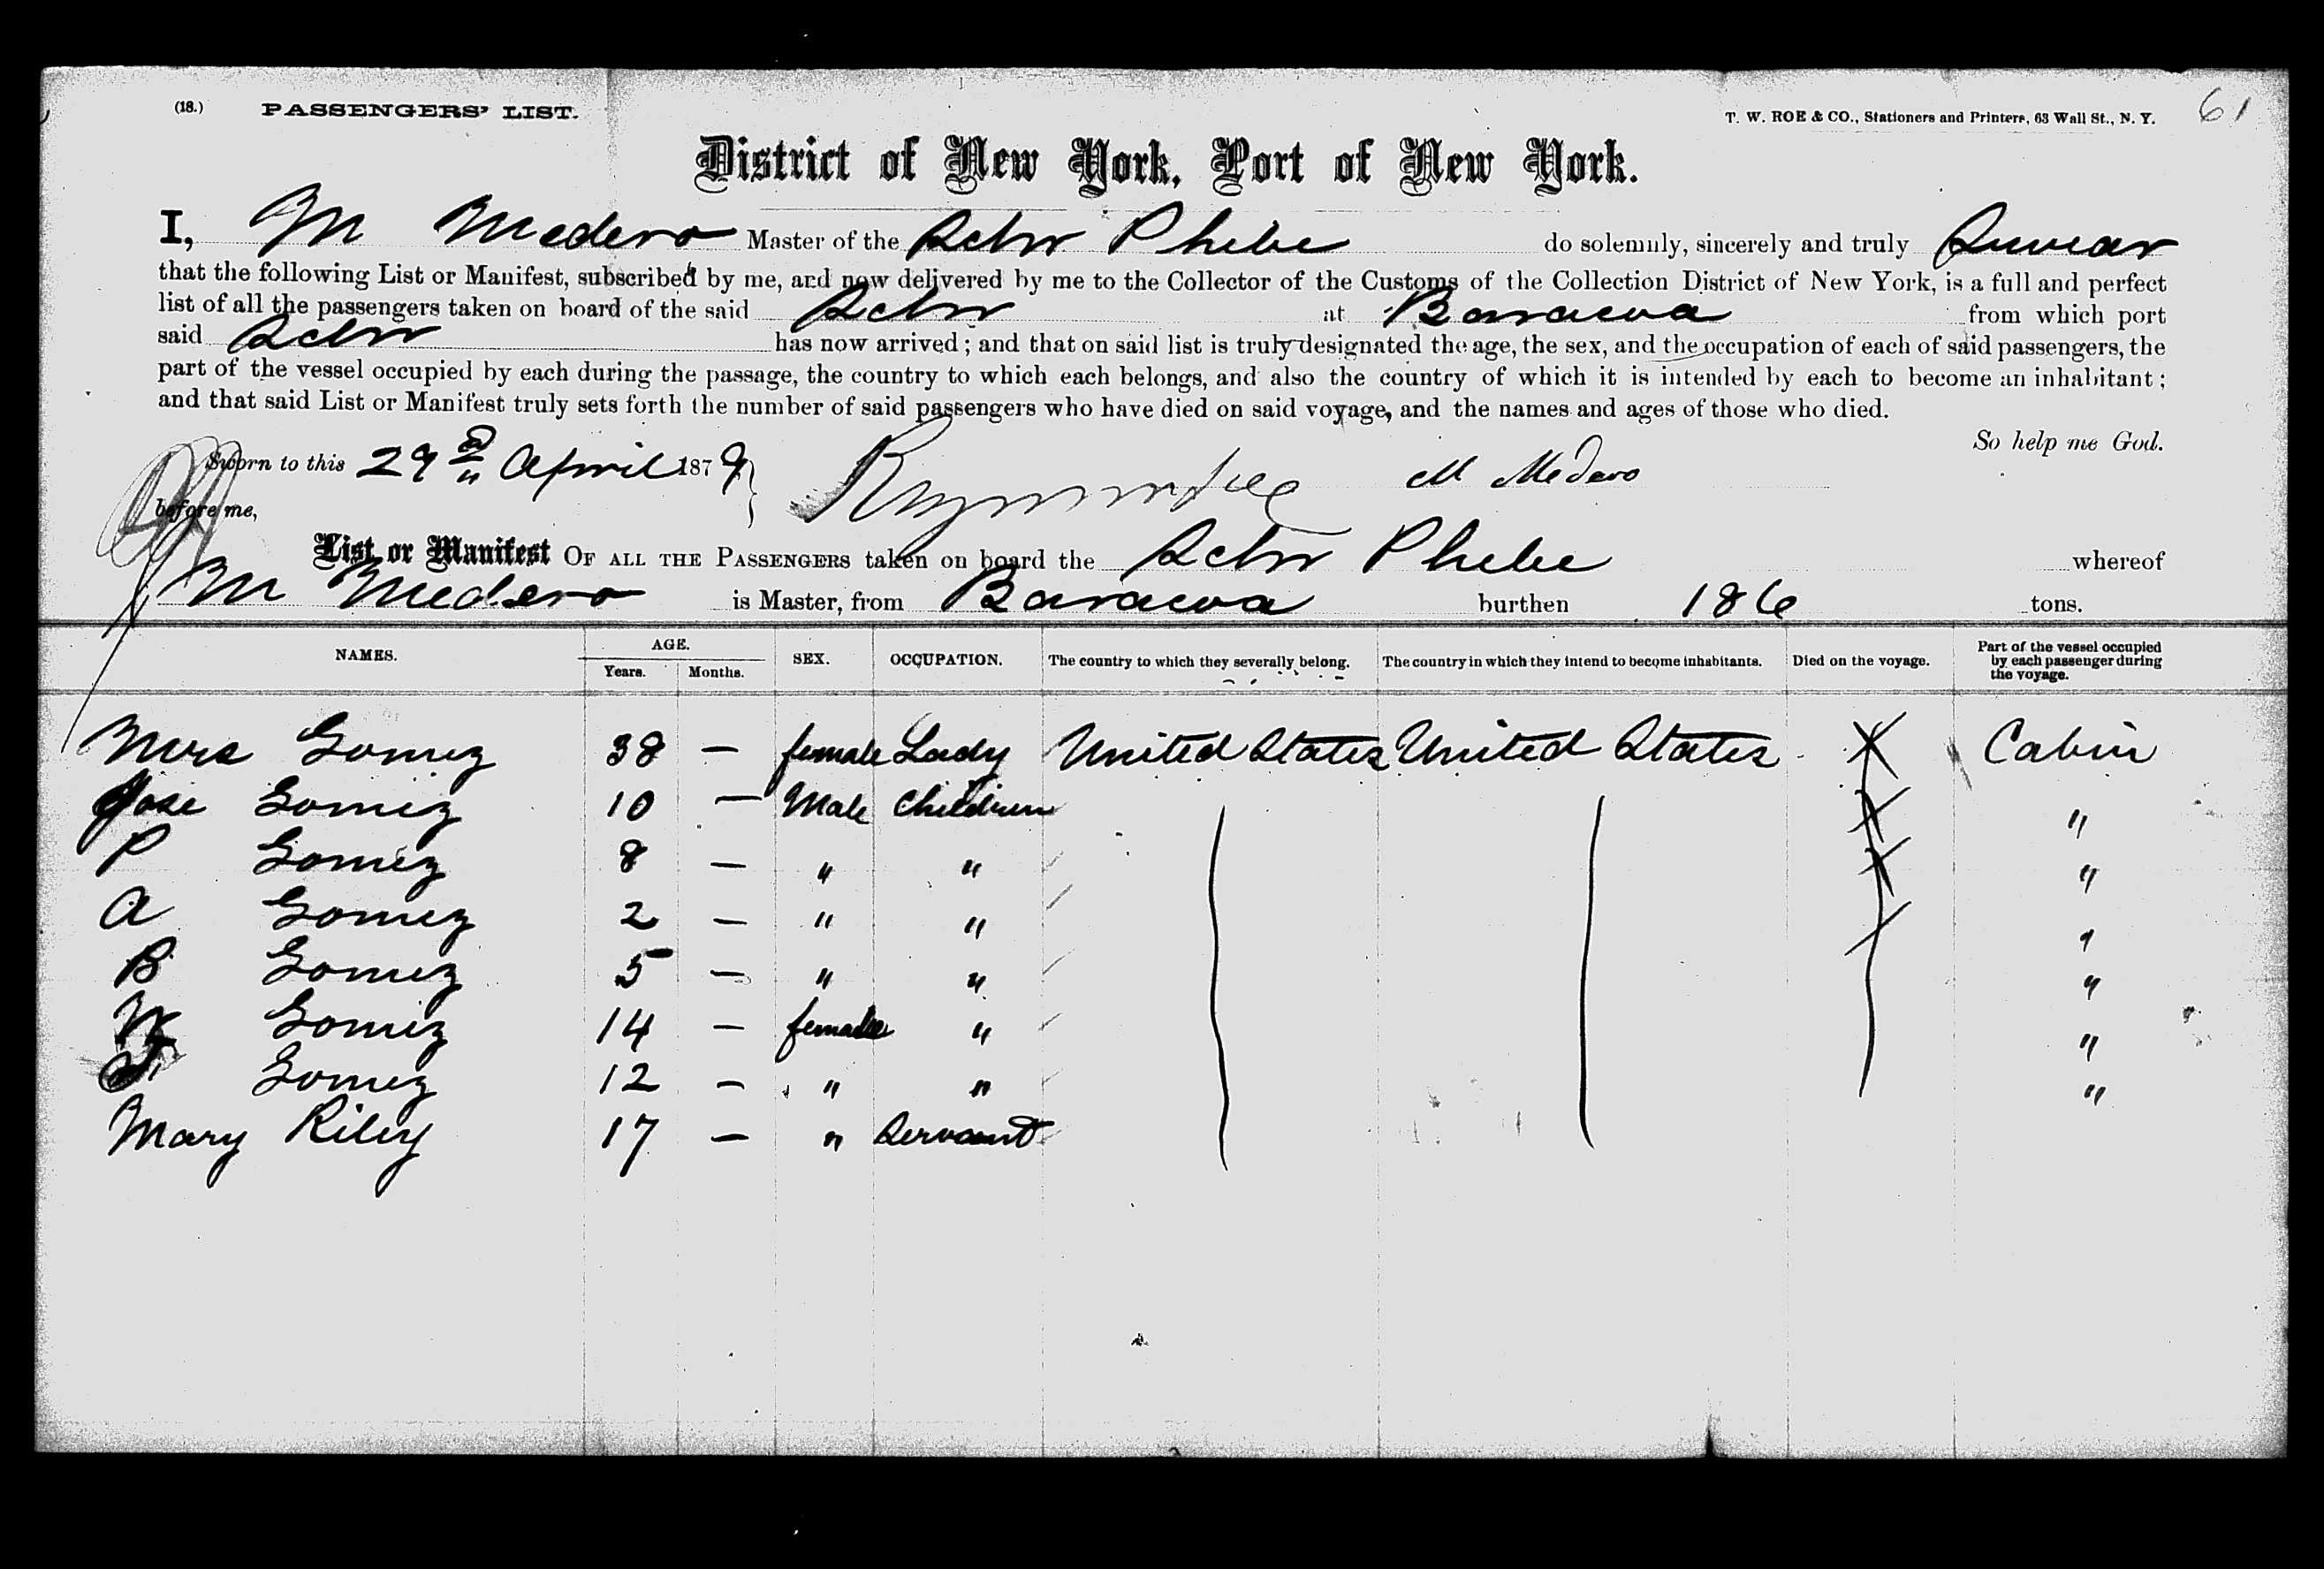 (18.) PASSENGERS' LIST. T. W. ROE & CO., Stationers and Printers, 63 Wall St., N. Y. 61
District of New York, Port of New York.
I, M Medero Master of the Schr Phebe do solemnly, sincerely and truly Swear
that the following List or Manifest, subscribed by me, and now delivered by me to the Collector of the Customs of the Collection District of New York, is a full and perfect
list of all the passengers taken on board of the said Schr at Baracoa from which port
said Schr has now arrived; and that on said list is truly designated the age, the sex, and the occupation of each of said passengers, the
part of the vessel occupied by each during the passage, the country to which each belongs, and also the country of which it is intended by each to become an inhabitant;
and that said List or Manifest truly sets forth the number of said passengers who have died on said voyage, and the names and ages of those who died.
So help me God.
Sworn to this 29 April 1879 M Medero
before me,
List or Manifest OF ALL THE PASSENGERS taken on board the Schr Phebe whereof
M Medero is Master, from Baracoa burthen 186 tons.
NAMES. AGE. Years. Months. SEX. OCCUPATION. The country to which they severally belong. The country in which they intend to become inhabitants. Died on the voyage. Part of the vessel occupied by each passenger during the voyage.
Mrs Gomez 38 — female Lady United States United States Cabin
Jose Gomez 10 — Male Children "
P Gomez 8 — " " "
A Gomez 2 — " " "
B Gomez 5 — " " "
Gomez 14 — female " "
Gomez 12 — " " "
Mary Riley 17 — " Servant